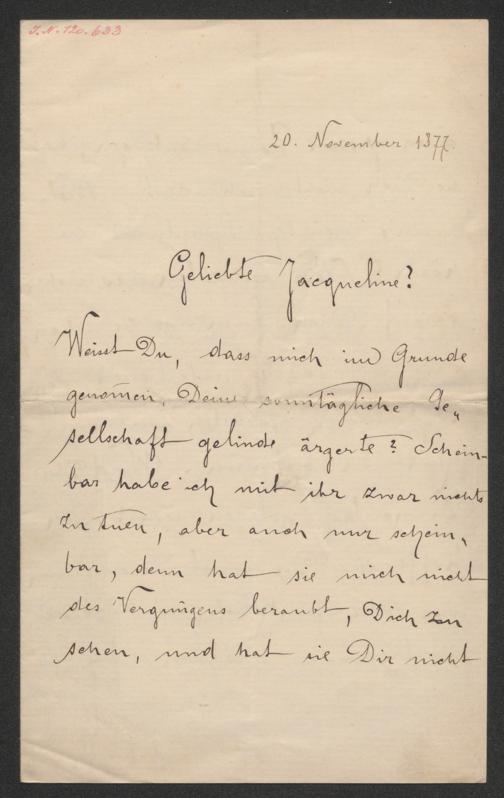 J.N. 120.633
20. November 1877.
Geliebte Jacqueline?
Weisst Du, dass mich im Grunde
genom̄en, Deine sonntägliche Ge„
sellschaft gelinde ärgerte? Schein-
bar habe ich mit ihr zwar nichts
zu tuen, aber auch nur schein„
bar, denn hat sie mich nicht
des Vergnügens beraubt, Dich zu
sehen, und hat sie Dir nicht